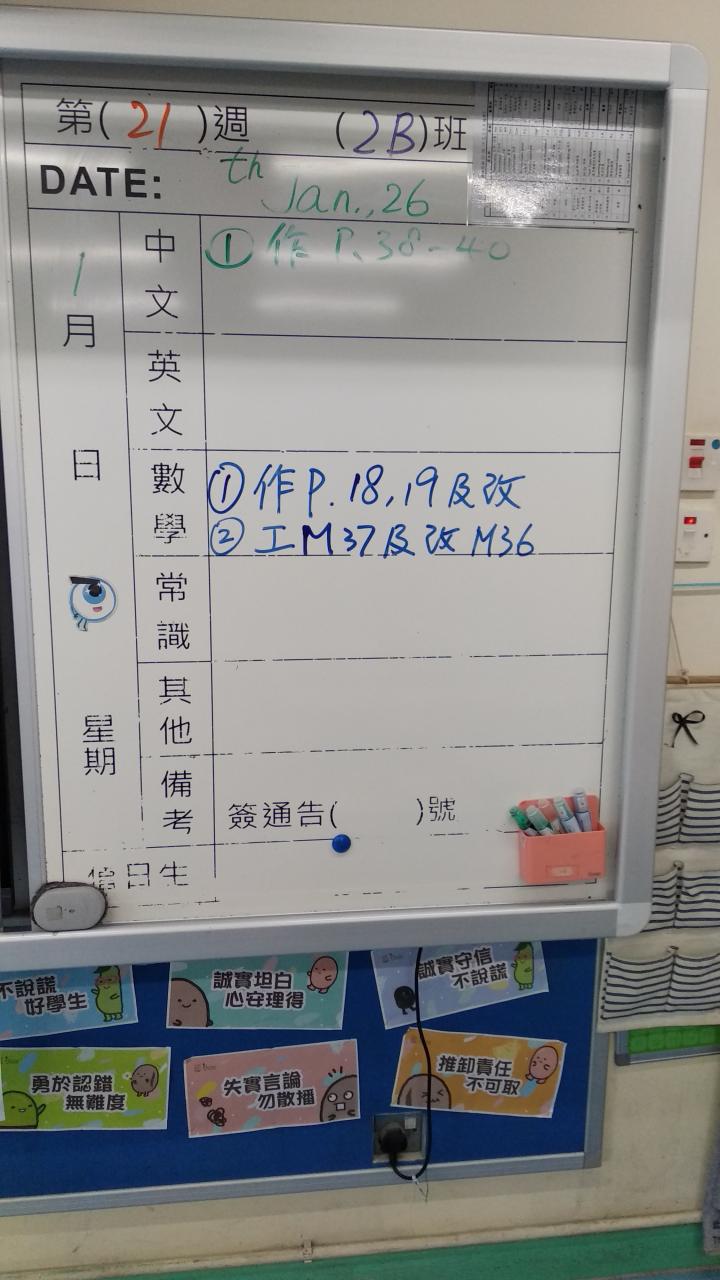 第(21)週 (2B)班
DATE: th Jan.,26
1月 日 星期
中文 ① 作 P.38-40
英文
數學 ① 作P.18,19及改
② 工M37及改M36
常識
其他
備考 簽通告( )號
值日生
不說謊
好學生
誠實坦白
心安理得
誠實守信
不說謊
勇於認錯
無難度
失實言論
勿散播
推卸責任
不可取